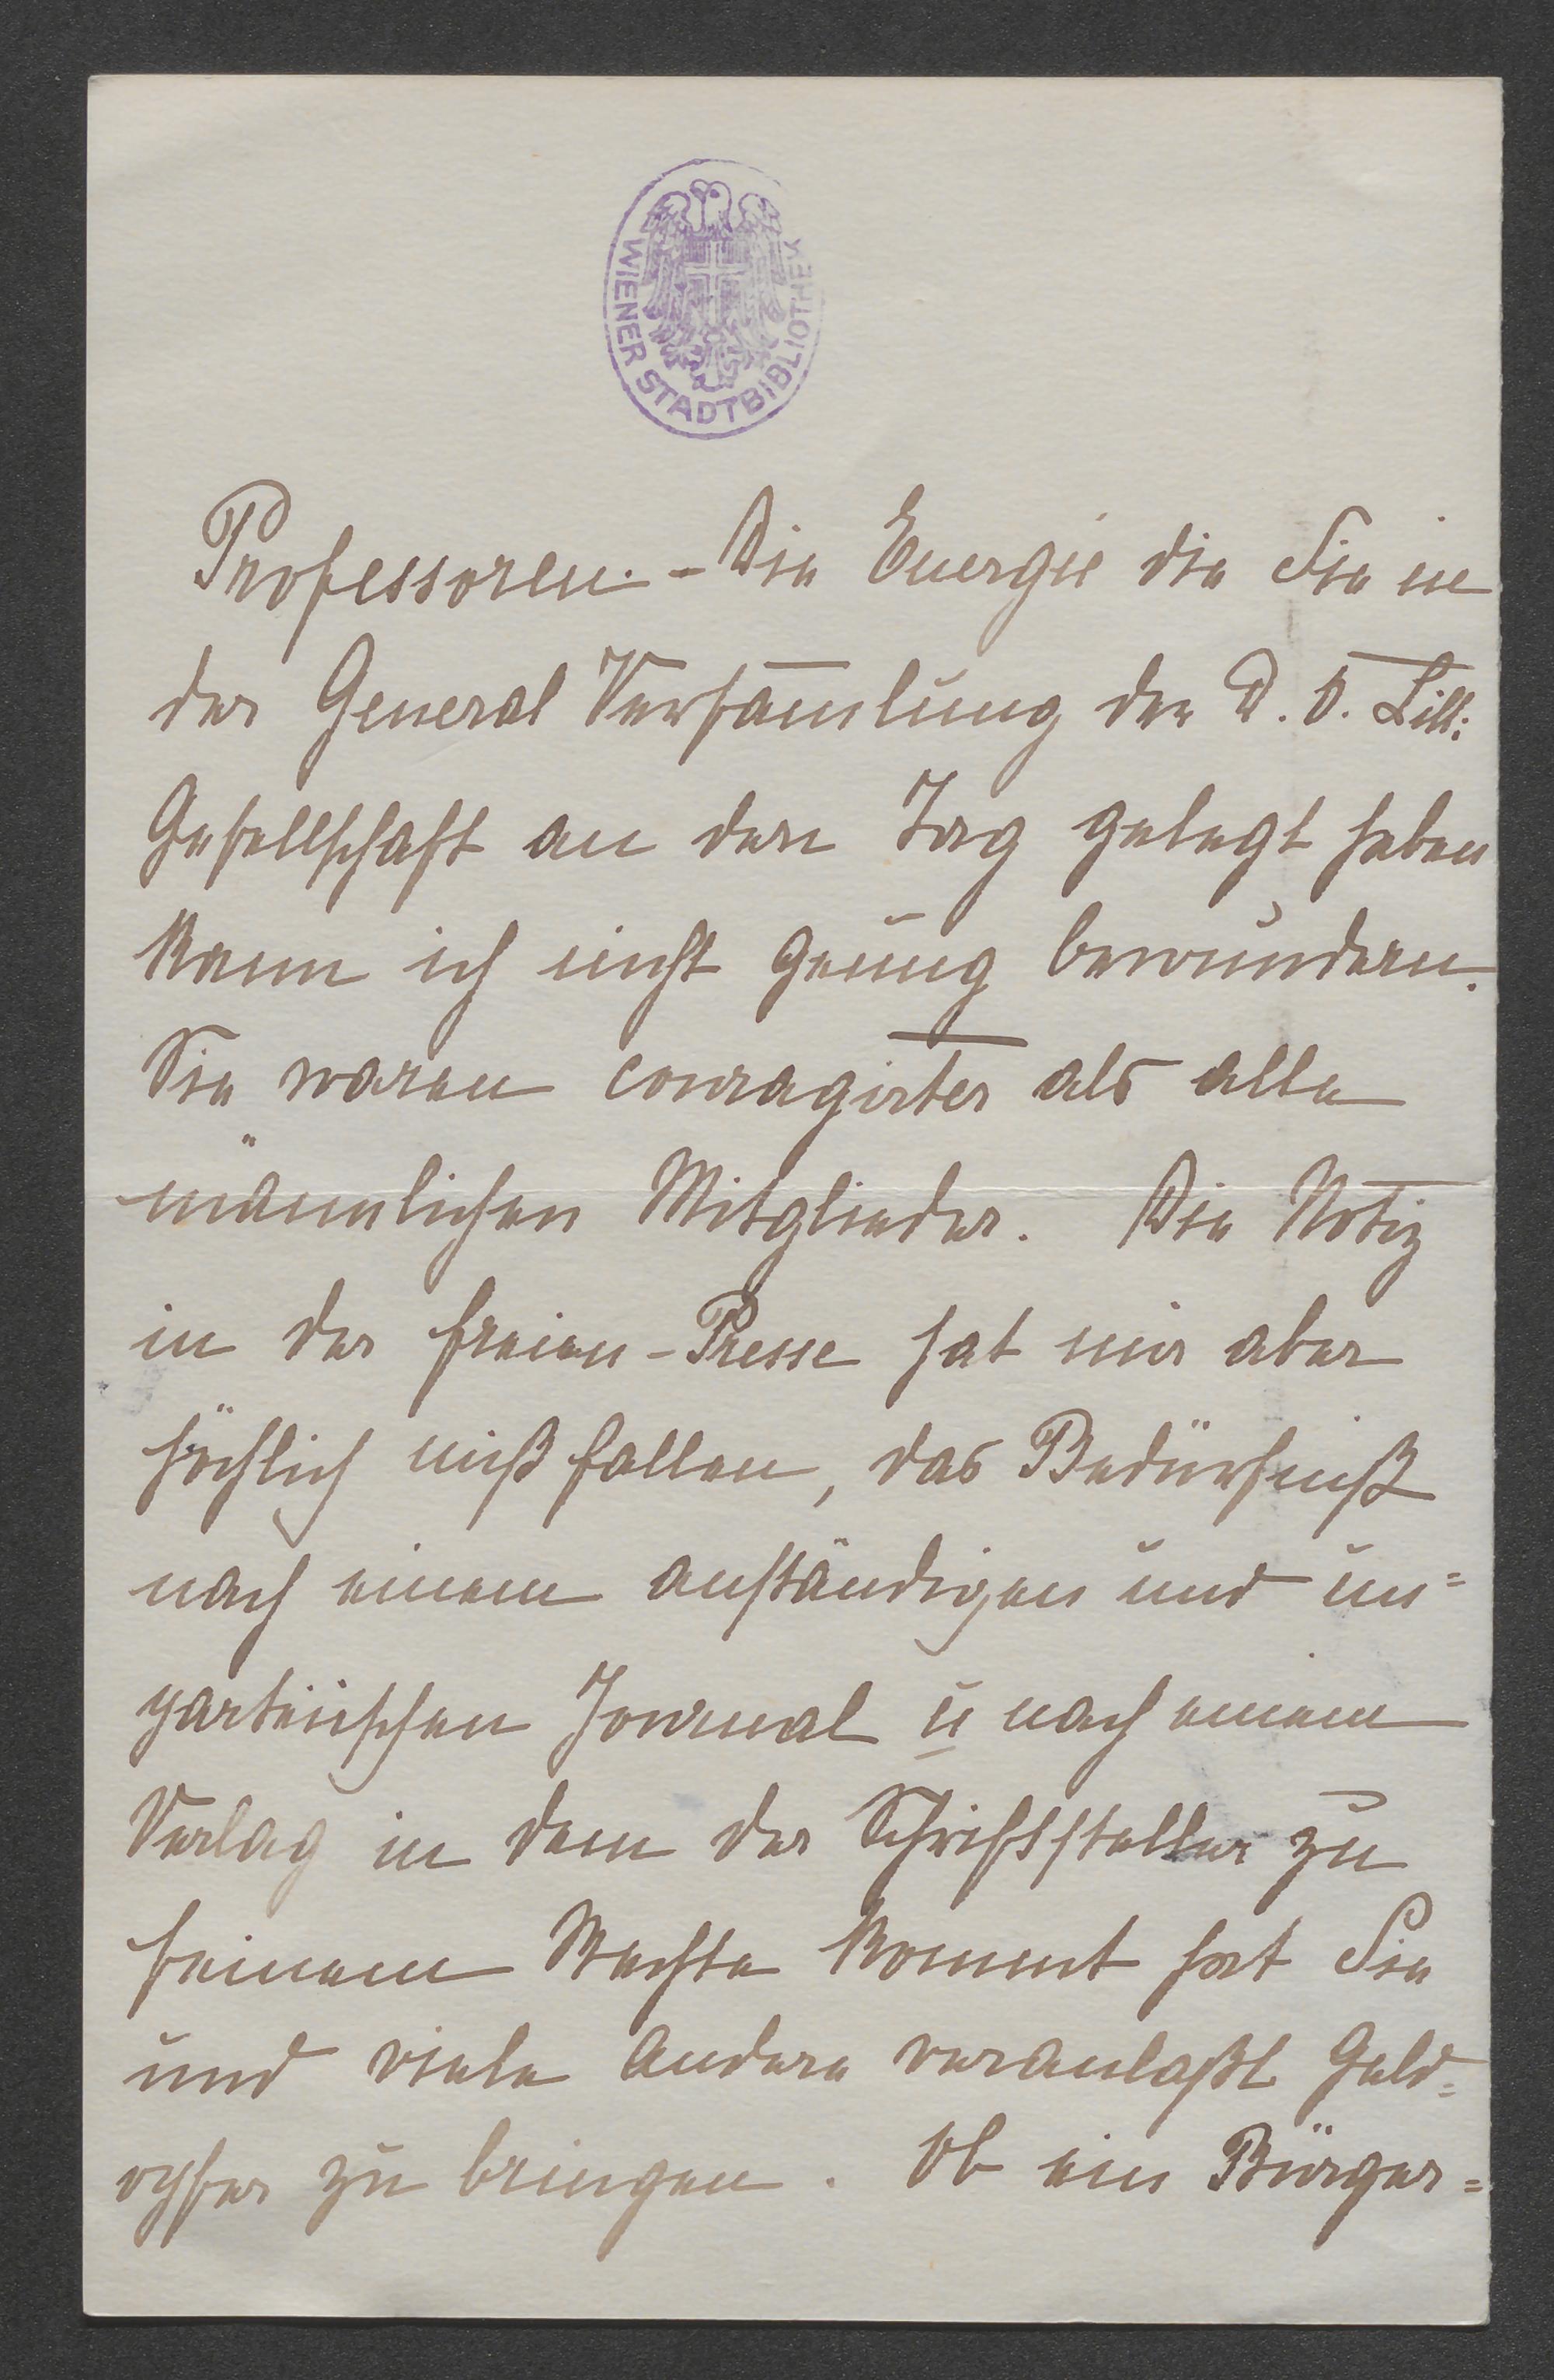 WIENER STADTBIBLIOTHEK
Professoren. - Die Energie die Sie in
der General Versam̅lung der D. Ö. Litt:
Gesellschaft an den Tag gelegt haben
kann ich nicht genug bewundern.
Sie waren couragirter als alle
männlichen Mitglieder. Die Notiz
in der freien-Presse hat mir aber
höchlich mißfallen, das Bedürfniß
nach einem anständigen und un=
parteiischen Journal u nach einem
Verlag in dem der Schriftsteller zu
seinem Rechte kommt hat Sie
und viele Andere veranlaßt Geld=
opfer zu bringen. Ob ein Bürger=